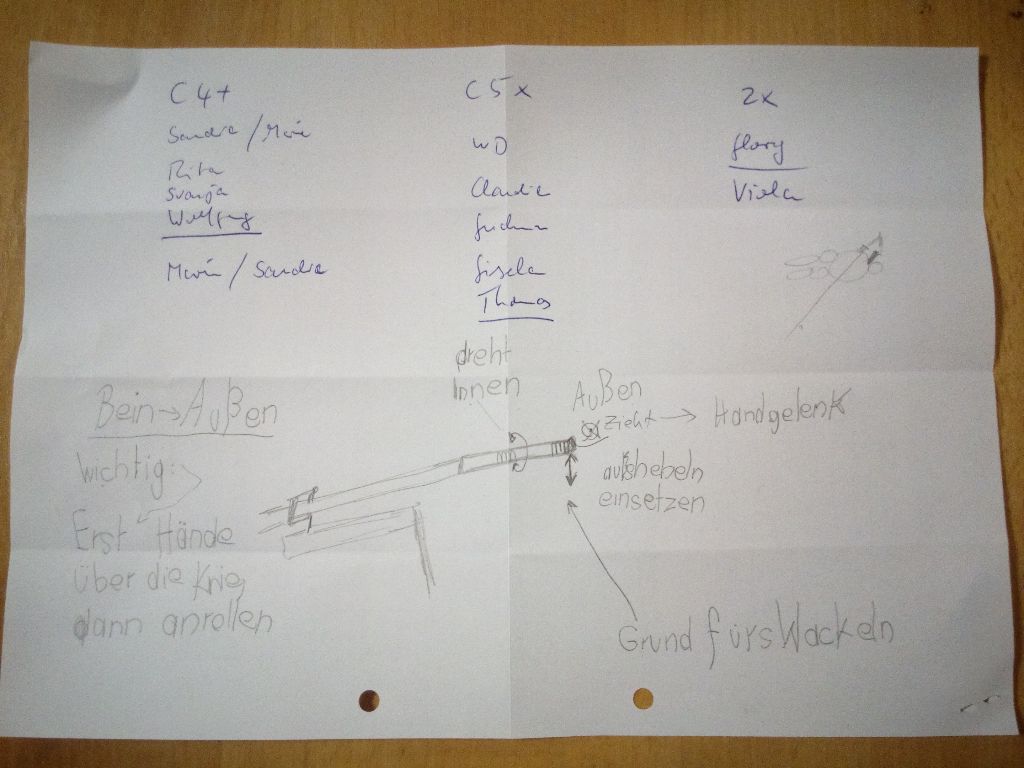 C4+
Sandra / Marie
Rita
Svanja
Wolfgang
Marie / Sandra
C5x
WD
Claudia
Gudrun
Gisela
Thomas
2x
Viola
dreht
Innen
Bein→Außen
wichtig:
Erst Hände
über die Knie,
dann anrollen
Außen
zieht → Handgelenk
aushebeln
einsetzen
Grund fürs Wackeln